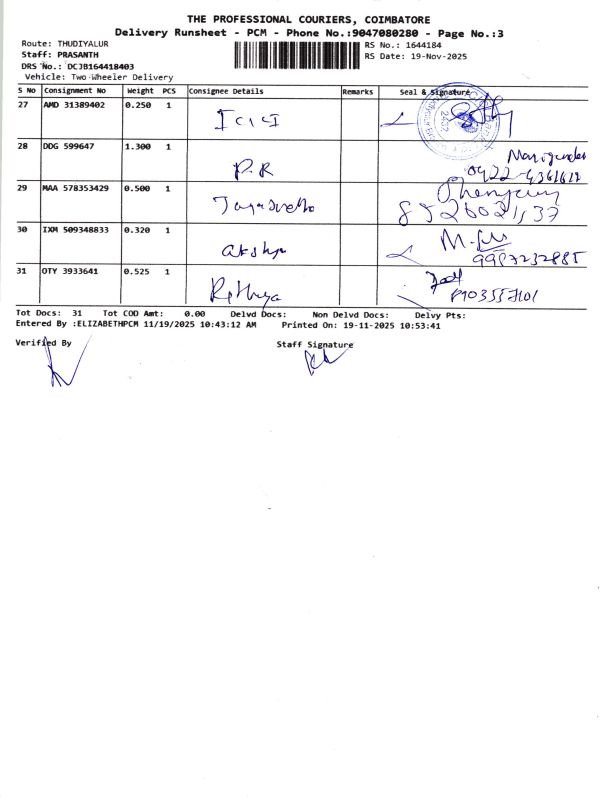 THE PROFESSIONAL COURIERS, COIMBATORE
Delivery Runsheet - PCM - Phone No.:9047080280 - Page No.:3
Route: THUDIYALUR
Staff: PRASANTH
DRS No.: DCJB164418403
Vehicle: Two Wheeler Delivery
RS No.: 1644184
RS Date: 19-Nov-2025
S No Consignment No Weight PCS Consignee Details Remarks Seal & Signature
27 AMD 31389402 0.250 1
ICICI
28 DDG 599647 1.300 1
P.R
29 MAA 578353429 0.500 1
30 IXM 509348833 0.320 1
9987232885
31 OTY 3933641 0.525 1
Tot Docs: 31 Tot COD Amt: 0.00 Delvd Docs: Non Delvd Docs: Delvy Pts:
Entered By :ELIZABETHPCM 11/19/2025 10:43:12 AM Printed On: 19-11-2025 10:53:41
Verified By Staff Signature